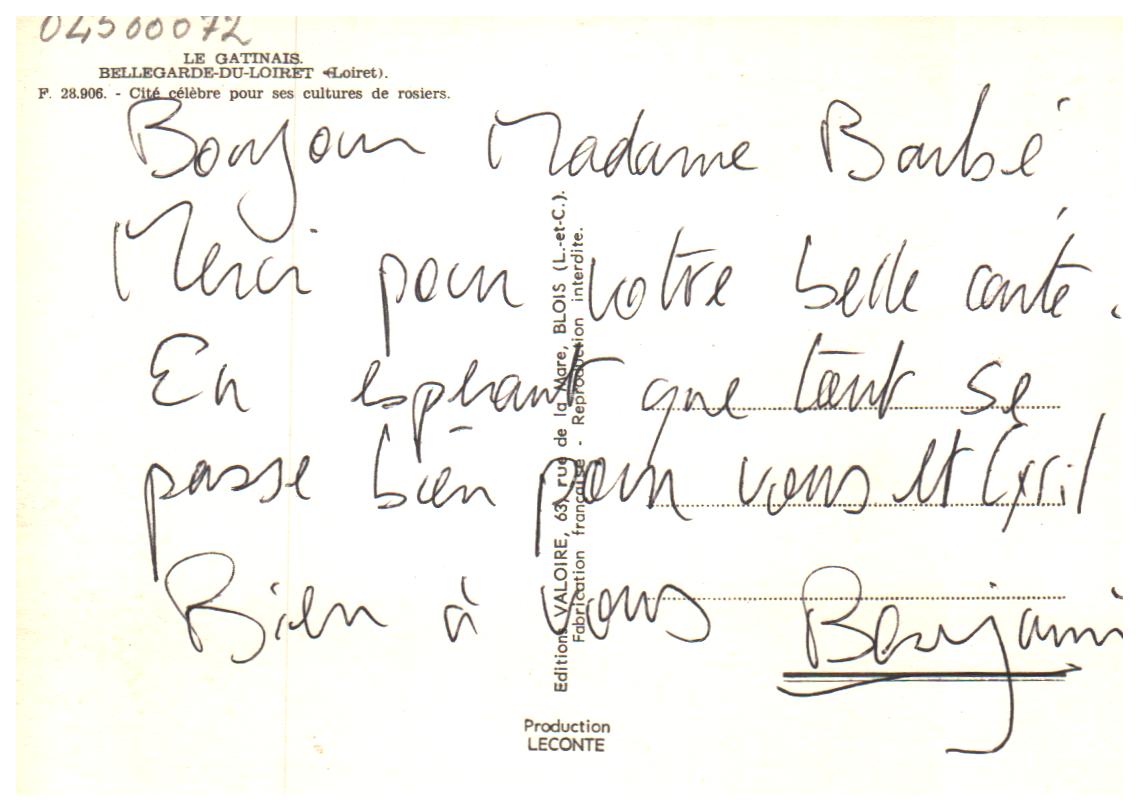 04500072
LE GATINAIS.
BELLEGARDE-DU-LOIRET (Loiret).
F. 28.906. - Cité célèbre pour ses cultures de rosiers.
Bonjour Madame Barbé
Merci pour votre belle carte.
En espérant que tout se
passe bien pour vous et Cyril
Bien à vous Benjamin
Editions VALOIRE, 63, rue de la Mare, BLOIS (L.-et-C.).
Fabrication française - Reproduction interdite.
Production
LECONTE